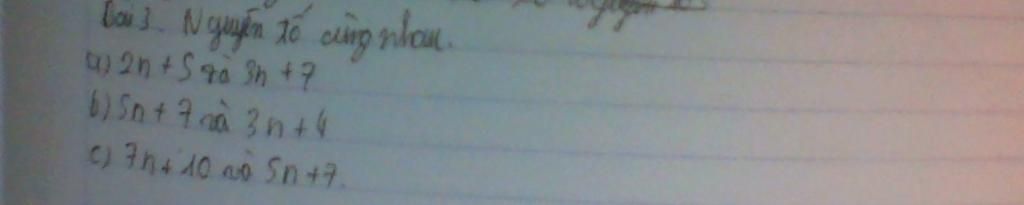 Bài 3. Nguyên tố cùng nhau.
a) 2n + 5 và 3n + 7
b) 5n + 7 và 3n + 4
c) 7n + 10 và 5n + 7.